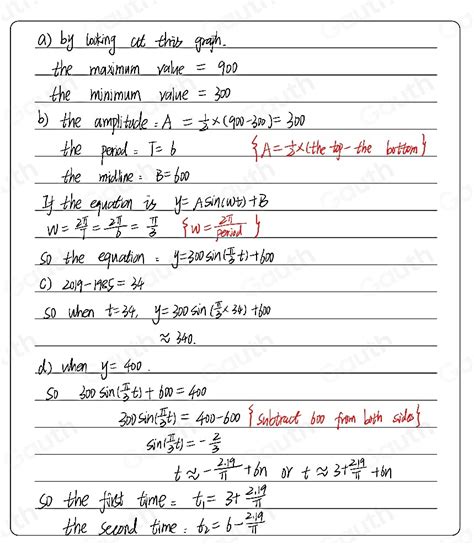 a) by looking at this graph.
the maximum value = 900
the minimum value = 300
b) the amplitude: A = 1/2 × (900-300) = 300
the period: T = 6 {A = 1/2 × (the top - the bottom)}
the midline: B = 600
If the equation is y = A sin(wt) + B
w = 2π/T = 2π/6 = π/3 {w = 2π/period}
So the equation: y = 300 sin(π/3 t) + 600
c) 2019 - 1985 = 34
So when t = 34, y = 300 sin(π/3 × 34) + 600
≈ 340.
d) when y = 400.
So 300 sin(π/3 t) + 600 = 400
300 sin(π/3 t) = 400 - 600 {subtract 600 from both sides}
sin(π/3 t) = - 2/3
t ≈ - 2.19/π + 6n or t ≈ 3 + 2.19/π + 6n
So the first time: t₁ = 3 + 2.19/π
the second time: t₂ = 6 - 2.19/π